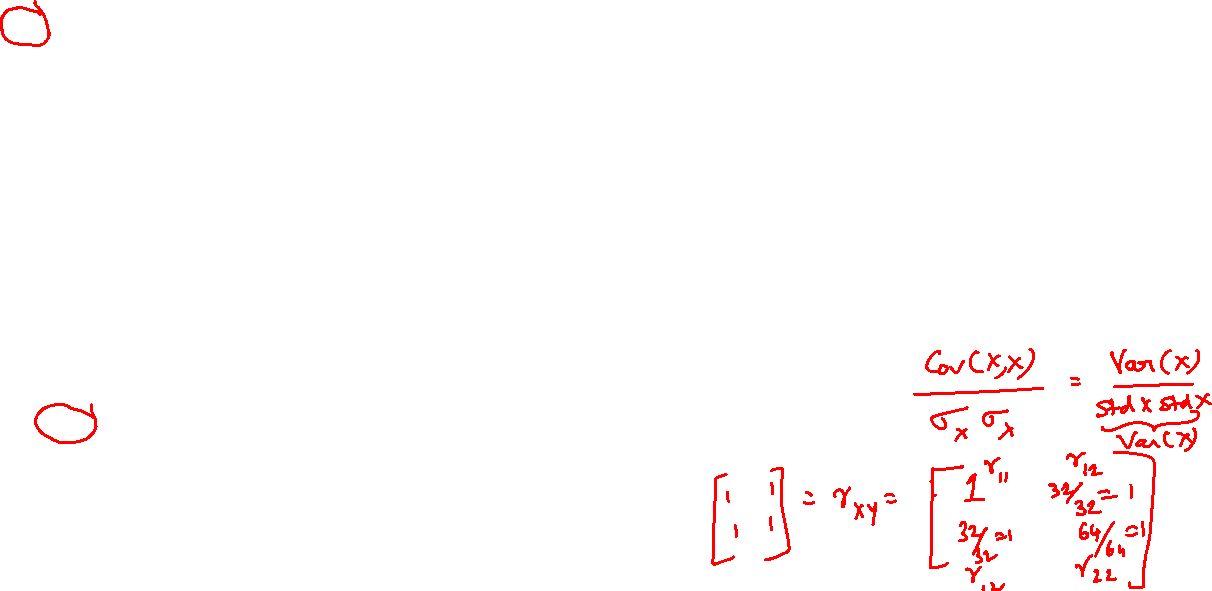 Cov(X,X) / σx σx = Var(X) / std x std x
Var(X)
[1 1 = r_XY = [1 r11 r12 32/32 = 1
1 1] 32/32 = 1 64/64 = 1]
r12 r22